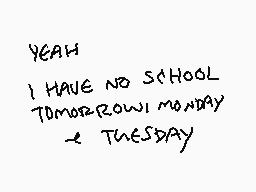 YEAH
I HAVE NO SCHOOL
TOMORROW, MONDAY
& TUESDAY